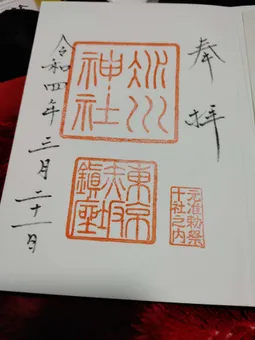 奉拝
氷川
神社
東京
赤坂
鎮座
元准勅祭
十社之内
令和四年三月二十一日